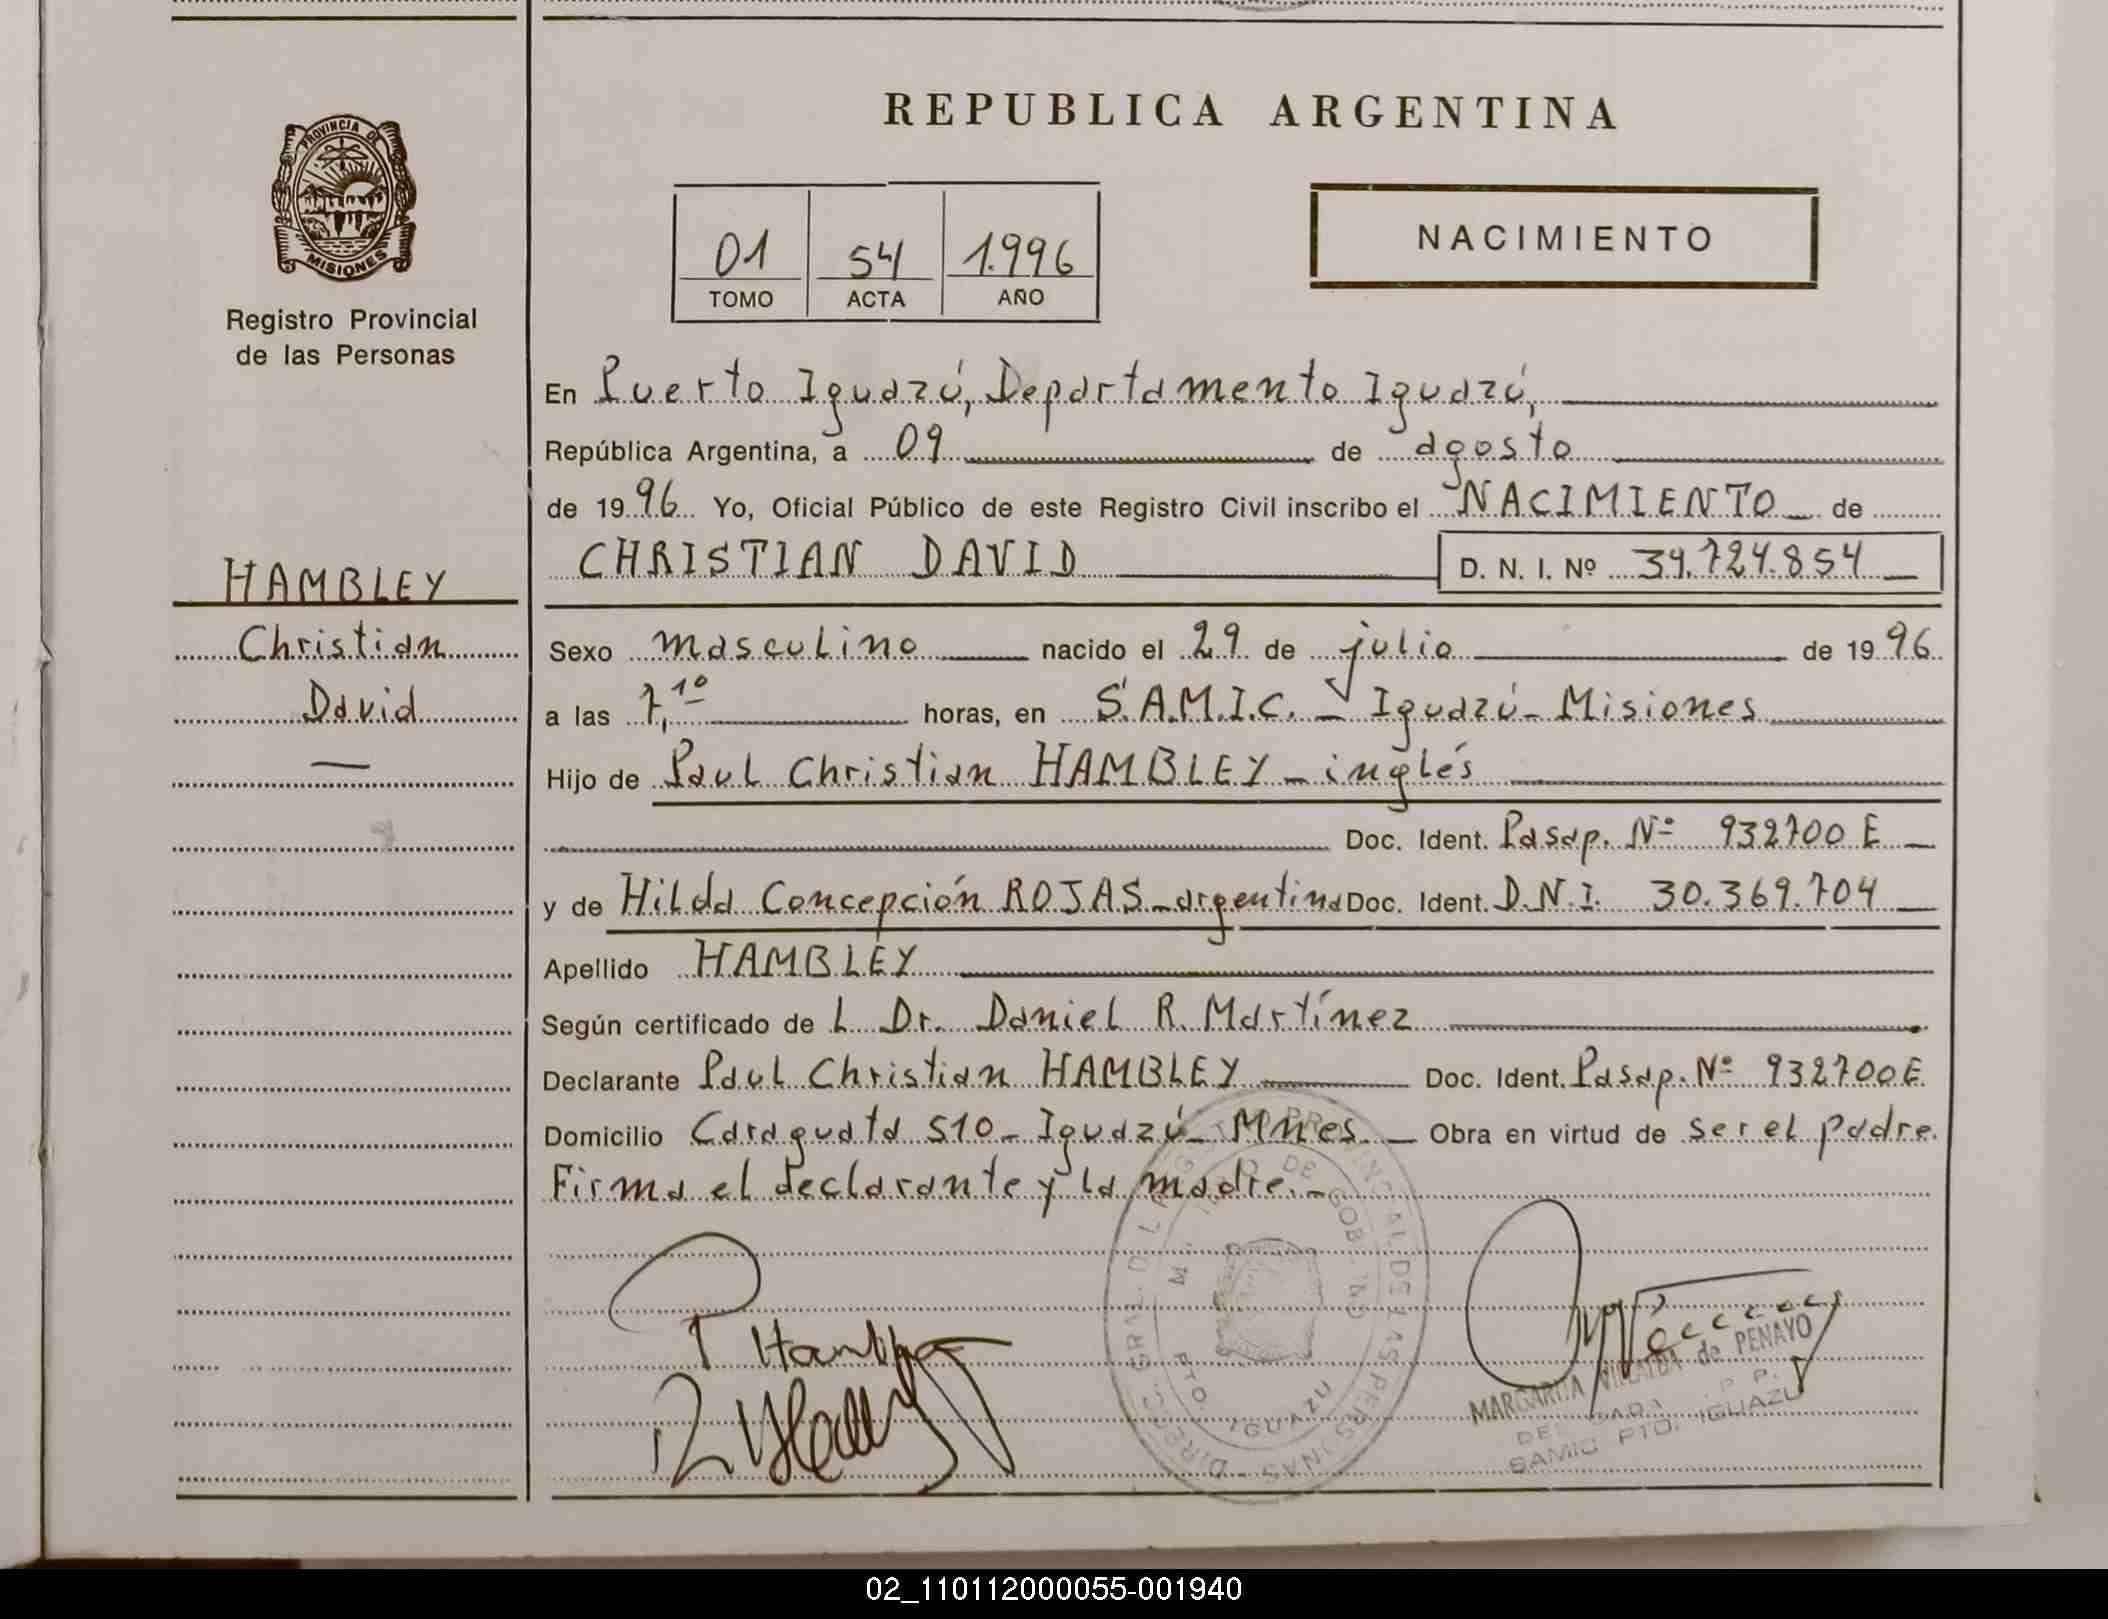 REPUBLICA ARGENTINA
PROVINCIA DE
MISIONES
Registro Provincial
de las Personas
01 54 1.996
TOMO ACTA AÑO
NACIMIENTO
En Puerto Iguazú, Departamento Iguazú,
República Argentina, a 09 de agosto
de 1996 Yo, Oficial Público de este Registro Civil inscribo el NACIMIENTO de
CHRISTIAN DAVID D. N. I. Nº 39.724.854
HAMBLEY
Christian
David
Sexo masculino nacido el 29 de julio de 1996
a las 7,10 horas, en S.A.M.I.C. - Iguazú - Misiones
Hijo de Paul Christian HAMBLEY - inglés
Doc. Ident. Pasap. Nº 932700 E
y de Hilda Concepción ROJAS - argentina Doc. Ident. D.N.I. 30.369.704
Apellido HAMBLEY
Según certificado de L Dr. Daniel R. Martínez
Declarante Paul Christian HAMBLEY Doc. Ident. Pasap. Nº 932700 E
Domicilio Caraguata 510 - Iguazú - Mnes. Obra en virtud de ser el padre.
Firma el declarante y la madre. -
DIRECC. GRAL. DEL REGISTRO PROVINCIAL DE LAS PERSONAS
PTO. IGUAZU
MARGARITA VILLALBA de PENAYO
SAMIC PTO. IGUAZU
02_110112000055-001940